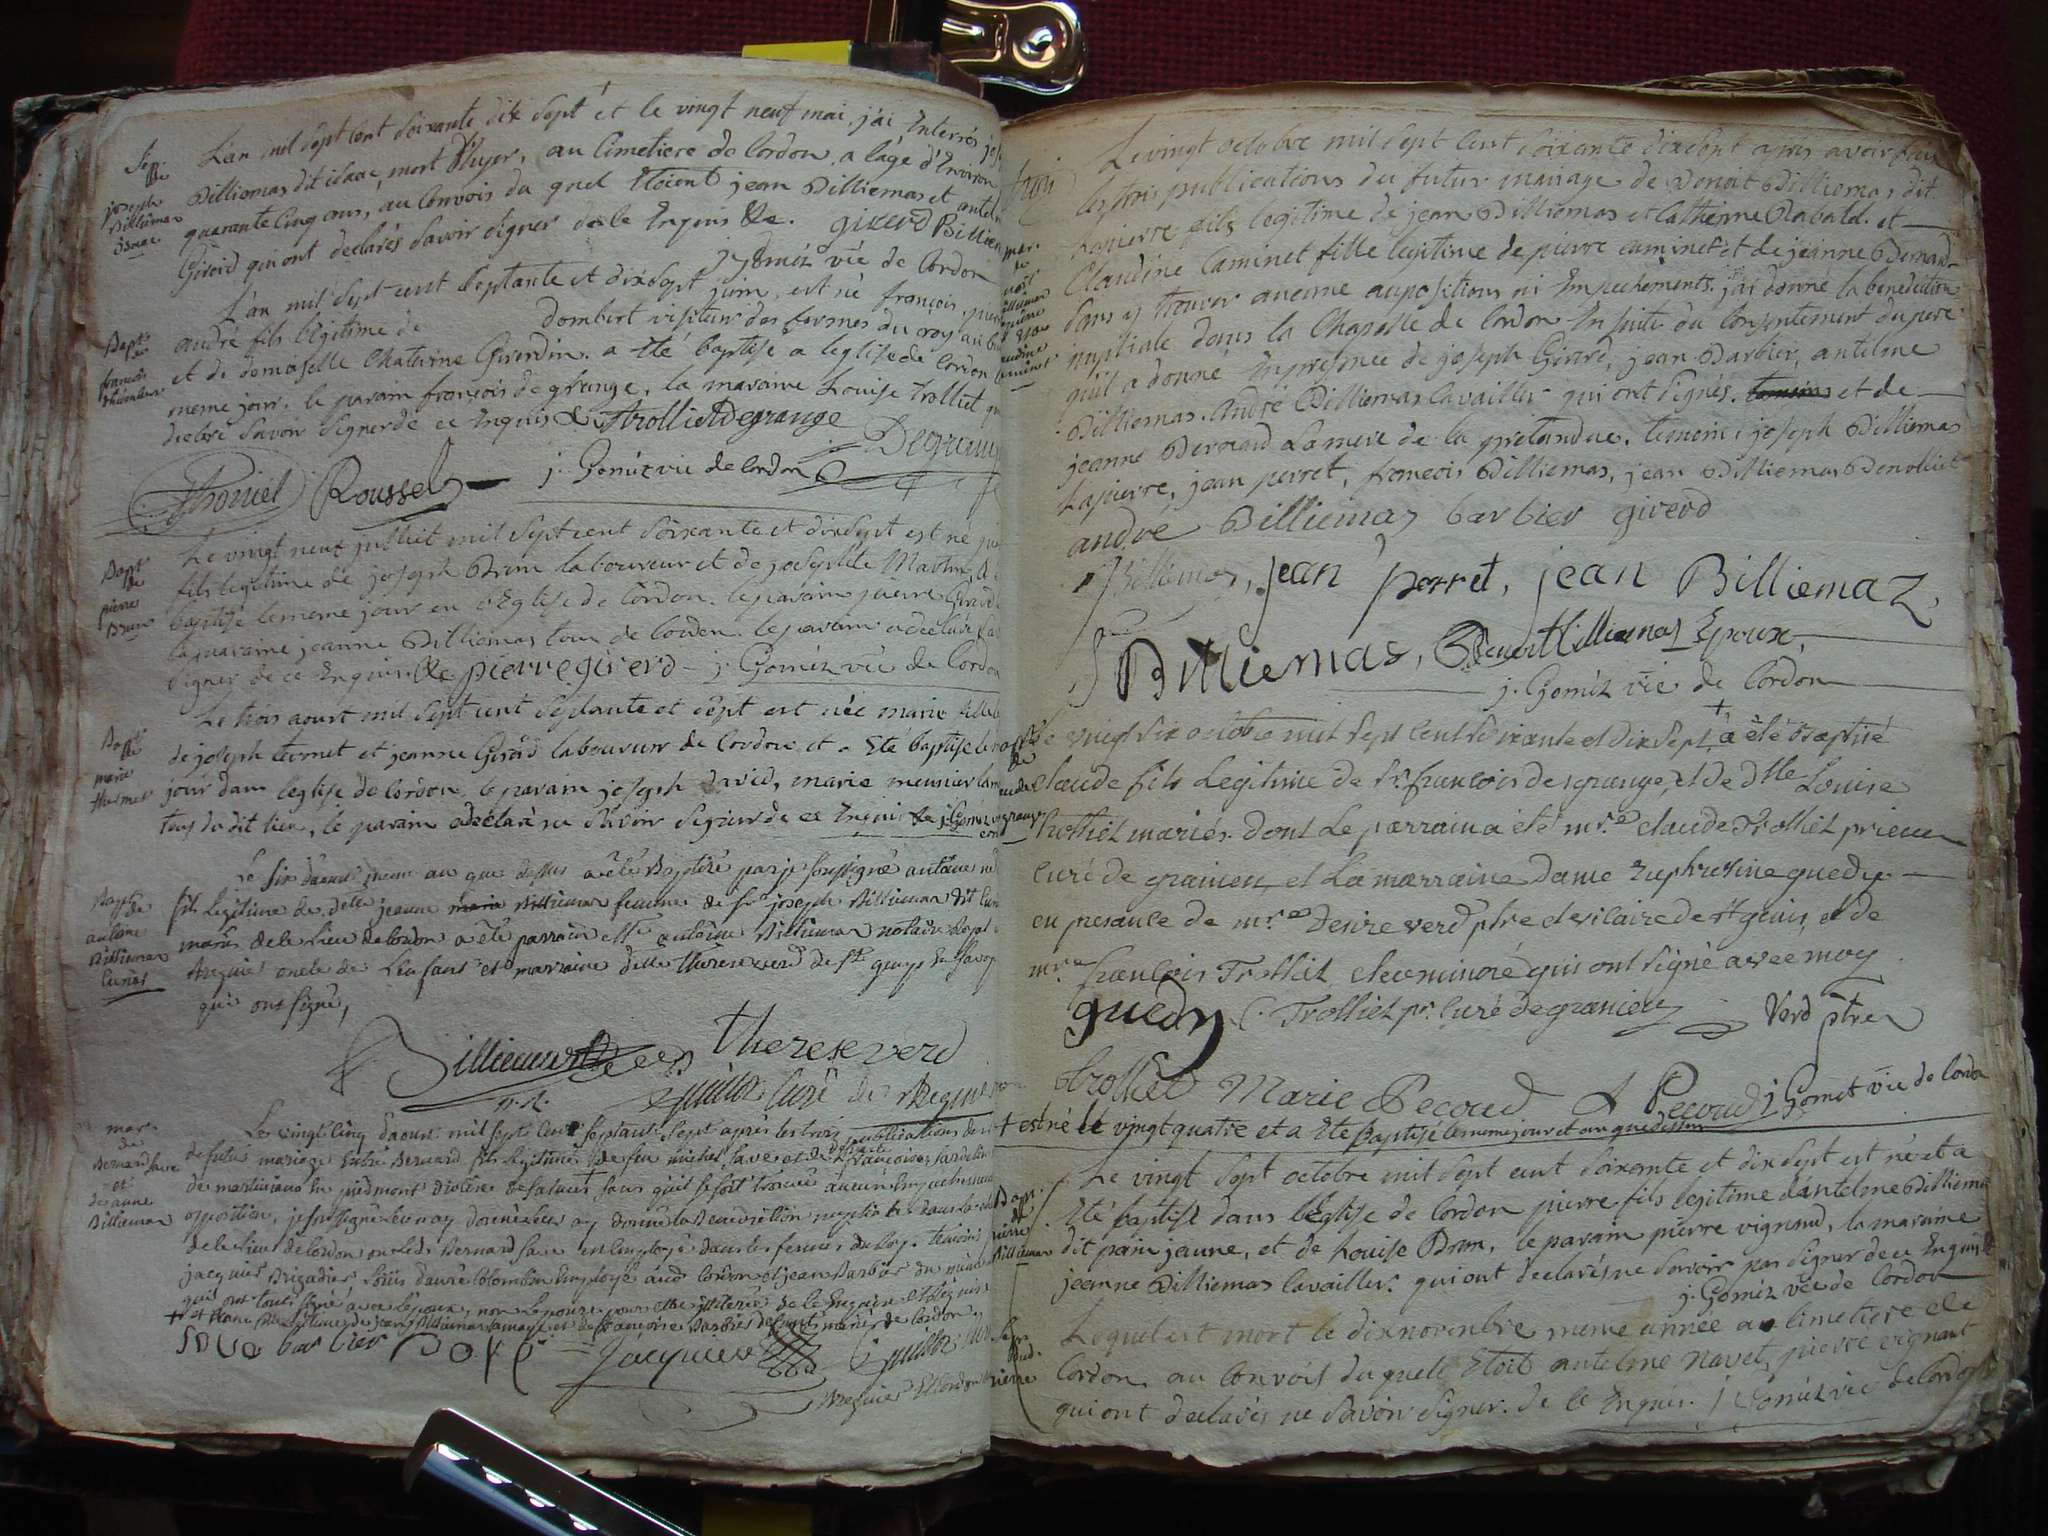 Sep.
de
joseph
Billiemas
isaac
L'an mil sept cent soixante dix sept et le vingt neuf mai, j'ai Enterrés
Billiemas dit isaac, mort d'hyer, au Cimetiere de Cordon, a l'age d'Environ
quarante cinq ans, au Convois du quel Etoient jean Billiemas et antel
Girerd qui ont declarés savoir signer de le Enquis &c. girerd Billiem
j. Goméz vic de Cordon
Bapt
de
françois
L'an mil sept cent septante et dixsept juin, est né françois, pier
andré fils legitime de dombert visiteur des fermes du roy au bu
et de demoiselle Chaterine Girerdin. a été baptisé a l'eglise de Cordon le
meme jour. le parain françois degrange, la maraine Louise Trolliet qui
declaré savoir signer de ce Enquis &c trolliet Degrange
Degrange
Thomet Roussel j. Goméz vic de Cordon
Bapt
de
pierre
Brun
Le vingt neuf juillet mil sept cent soixante et dixsept est né pie
fils legitime de joseph Brun laboureur et de josephte Martin, a
baptisé le meme jour en l'Eglise de Cordon. le parain pierre Girerd
la maraine jeanne Billiemas tous de Cordon. le parain a declaré sa
signer de ce Enquis. &c pierre girerd j. Goméz vic de Cordon
Bapt
de
marie
thernet
Le trois aoust mil sept cent septante et sept est née marie fille l
de joseph ternet et jeanne Girerd laboureur de Cordon et a Eté baptisé le m
jour dans l'eglise de Cordon. le parain joseph david, marie meunier la m
tous du dit lieu, le parain a declaré ne savoir signer de ce Enquis &c j. Goméz
Bapt
de
antoine
Billiemas
Le six d'aoust meme an que dessus a été Baptisé par je soussigné antoine né
fils legitime de jeanne Billiemas femme de Sr joseph Billiemas dit
mariés de le lieu de Cordon a été parrain antoine Billiemas notaire Royal
Bregnier oncle de L'enfant et marraine dlle therese verd de st genys En Savoye
qui ont signé,
Billiemas therese verd
Guillot Curé de Bregnier
mar.
de
Bernard save
et
jeanne
Billiemas
Le vingt cinq d'aoust mil sept cent septante sept après les trois publications
de futur mariage Entre Bernard fils legitime de feu michel save et de françoise
de martiniana En piedmont diocese de saluces sans qu'il se soit trouvé aucun Empechement
opposition, je soussigné donné la Benediction nuptiale dans la
de le lieu de Cordon Bernard save employé dans les fermes du Roy. temoins
jacquier Brigadier, Loüis dauré Colombin Employé aud Cordon et jean Barbier du
qui ont tous signé avec l'epoux, non l'epouse pour etre illiterée de le Enquise
save barbier jacquier Guillot curé
Bregnier Et Cordon
mar.
Le vingt octobre mil sept cent soixante dixsept apris avoir fait
les trois publications du futur mariage de Benoit Billiemas dit
Lapierre fils legitime de jean Billiemas et Catherine Rabald. et
Claudine Caminet fille legitime de pierre caminet et de jeanne Bernard
sans y trouver aucune aupositions ni Empechements. j'ai donné la benediction
nuptiale dans la Chapelle de Cordon En suite du Consentement du pere
qu'il a donné En presence de joseph Girerd, jean Barbier, antelme
Billiemas. andré Billiemas Cavaillier qui ont signés. temoins et de
jeanne Bernard La mere de la pretandue. temoins joseph Billiemas
Lapierre, jean perret, francois Billiemas, jean Billiemas Benoliet
andré Billiemaz barbier girerd
Billiemas, jean perret, jean Billiemaz,
Billiemas, Benoit Billiemas Epoux,
j. Goméz vic de Cordon
Le vingt six octobre mil sept cent soixante et dix sept, + a été Baptisé
claude fils Legitime de Sr. françois desgrange et de dlle Louise
Trolliet mariés. dont Le parrain a été mre claude Trolliet prieur
curé de granieu et La marraine dame Euphrosine guedy
en presance de mre Desire verd ptre et vicaire de st genis et de
mre françois Trolliet, clerc minoré qui ont signé avec moy.
guedy C. Trolliet pr. Curé de granieu Verd ptre
trolliet Marie Pecoud A Pecoud j Gomet vic de Cordon
+ est né le vingt quatre et a Eté baptisé le meme jour et an que dessus
Bapt.
de
pierre
Billiemas
Le vingt sept octobre mil sept cent soixante et dix sept est né et a
Eté baptisé dans l'Eglise de Cordon pierre fils legitime d'antelme Billiemas
dit pain jaune, et de Louise Brun, le parain pierre vignaud, la maraine
jeanne Billiemas Cavaillier. qui ont declarés ne savoir pas signer de ce Enquis
j. Goméz vic de Cordon
Sep.
dud.
pierre
Lequel est mort le dix novembre meme année au Cimetiere de
Cordon. au Convois du quel Etoit antelme Navet, pierre vignaut
qui ont declarés ne savoir signer. de le Enquis. j Goméz vic de Cordon